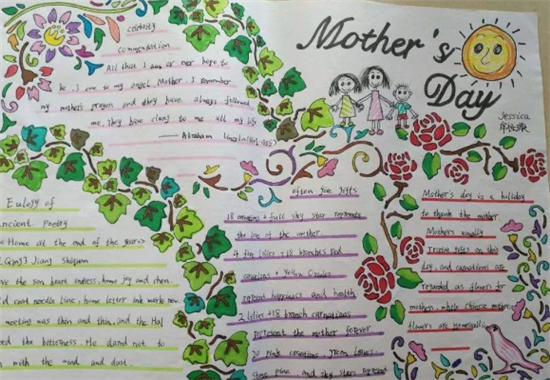 celebrity
Commendation
All that I am or ever hope to
be, I owe to my angel Mother. I remember
my mother's prayers and they have always followed
me. They have clung to me all my life.
—— Abraham Lincoln
Mother's
Day
Jessica
Eulogy of
ancient Poetry
Home at the end of the year
Jiang Shiquan
the son heart endless, home joy and
cold coat needle line, home letter ink marks new.
meeting was thin and thin, and the
the bitterness. He dared not to
with the wind and dust.
often give gifts
18 carnations + full sky star represents
the love of the mother
lilies + 18 branches red
carnations + yellow
represent happiness and health
2 lilies + 18 branch carnations
represent the mother forever
20 pink carnations, green leaves
and sky stars represent
Mother's day is a holiday
to thank the mother.
Mothers usually
receive gifts on this
day, and carnations are
regarded as flowers for
mothers, while Chinese mother
flowers are Hemerocallis.